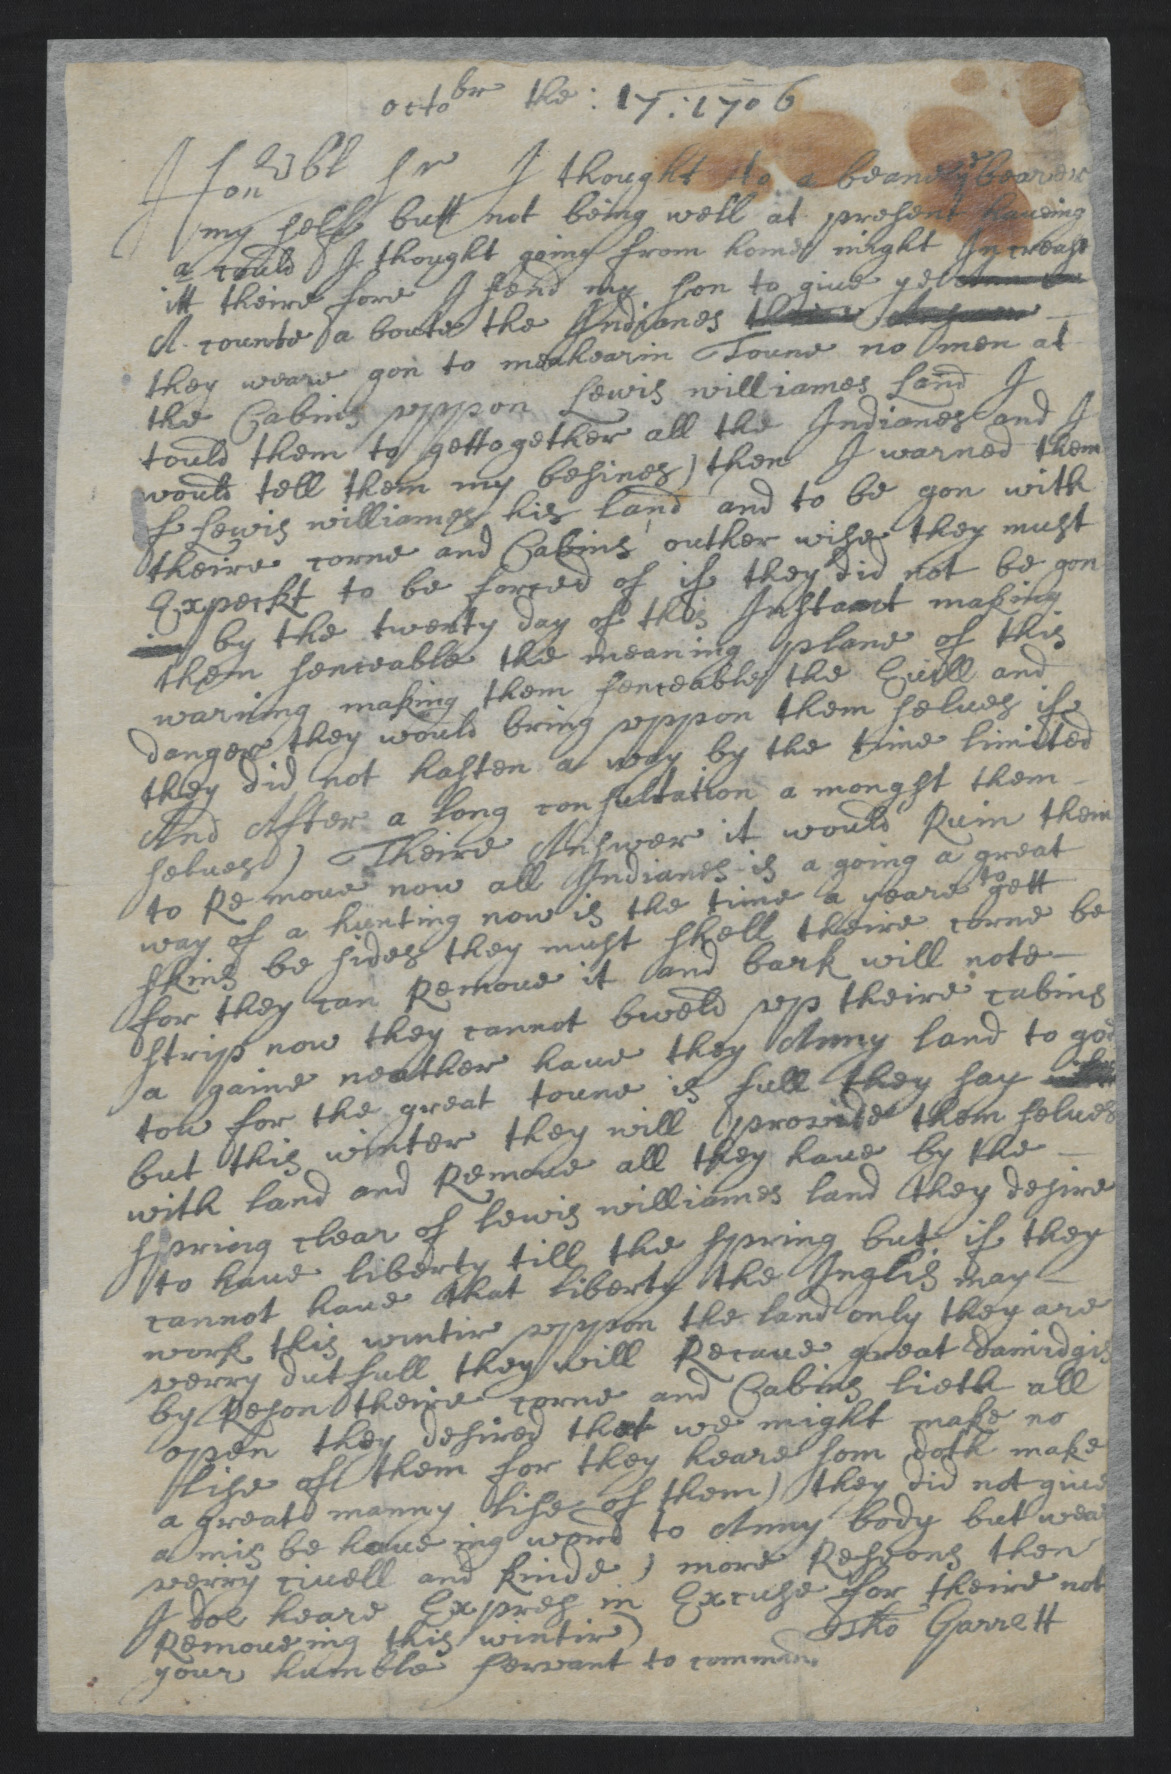 octobr the: 17: 1706
Honrbl Sr I thought to a beane ye bearer
my self butt not being well at present haueing
a could I thought going from home might Increase
itt theire fore I send my son to giue ye
A counte a boute the Indianes
they weare gon to meahearin Toune no men at
the Cabins vppon Lewis williames Land I
tould them to gett together all the Indianes and I
would tell them my besines) then I warned them
of Lewis williames his land and to be gon with
theire corne and Cabins outher wise they must
Expeckt to be forced of if they did not be gon
by the twenty day of this Instant making
them senceable the meaning plane of this
warning making them senceable the Euill and
danger they would bring vppon them selues if
they did not hasten a way by the time limited
And After a long consultation a mongst them
selues) Theire Answer it would Ruin them
to Remoue now all Indianes is a going a great
way of a hunting now is the time a yeare to gett
skins be sides they must shell theire corne be
for they can Remoue it and bark will note
strip now they cannot bweld vp theire cabins
a gaine neather haue they Anny land to goe
tow for the great toune is full they say
but this winter they will provide them selues
with land and Remoue all they haue by the
spring clear of lewis williames land they desire
to haue liberty till the spring but if they
cannot haue that liberty the Inglis may
work this wintir vppon the land only they are
verry dutfull they will Recaue great damidgis
by Reson theire corne and Cabins lieth all
open they desired that we might make no
lise of them for they heare som doth make
a greate manny lise of them) they did not giue
a mis be haue ing word to Anny body but weare
verry ciuell and kinde) more Resons then
I doe heare Expres in Excuse for theire not
Remoueing this wintir) Tho Garrett
your humble servant to comman